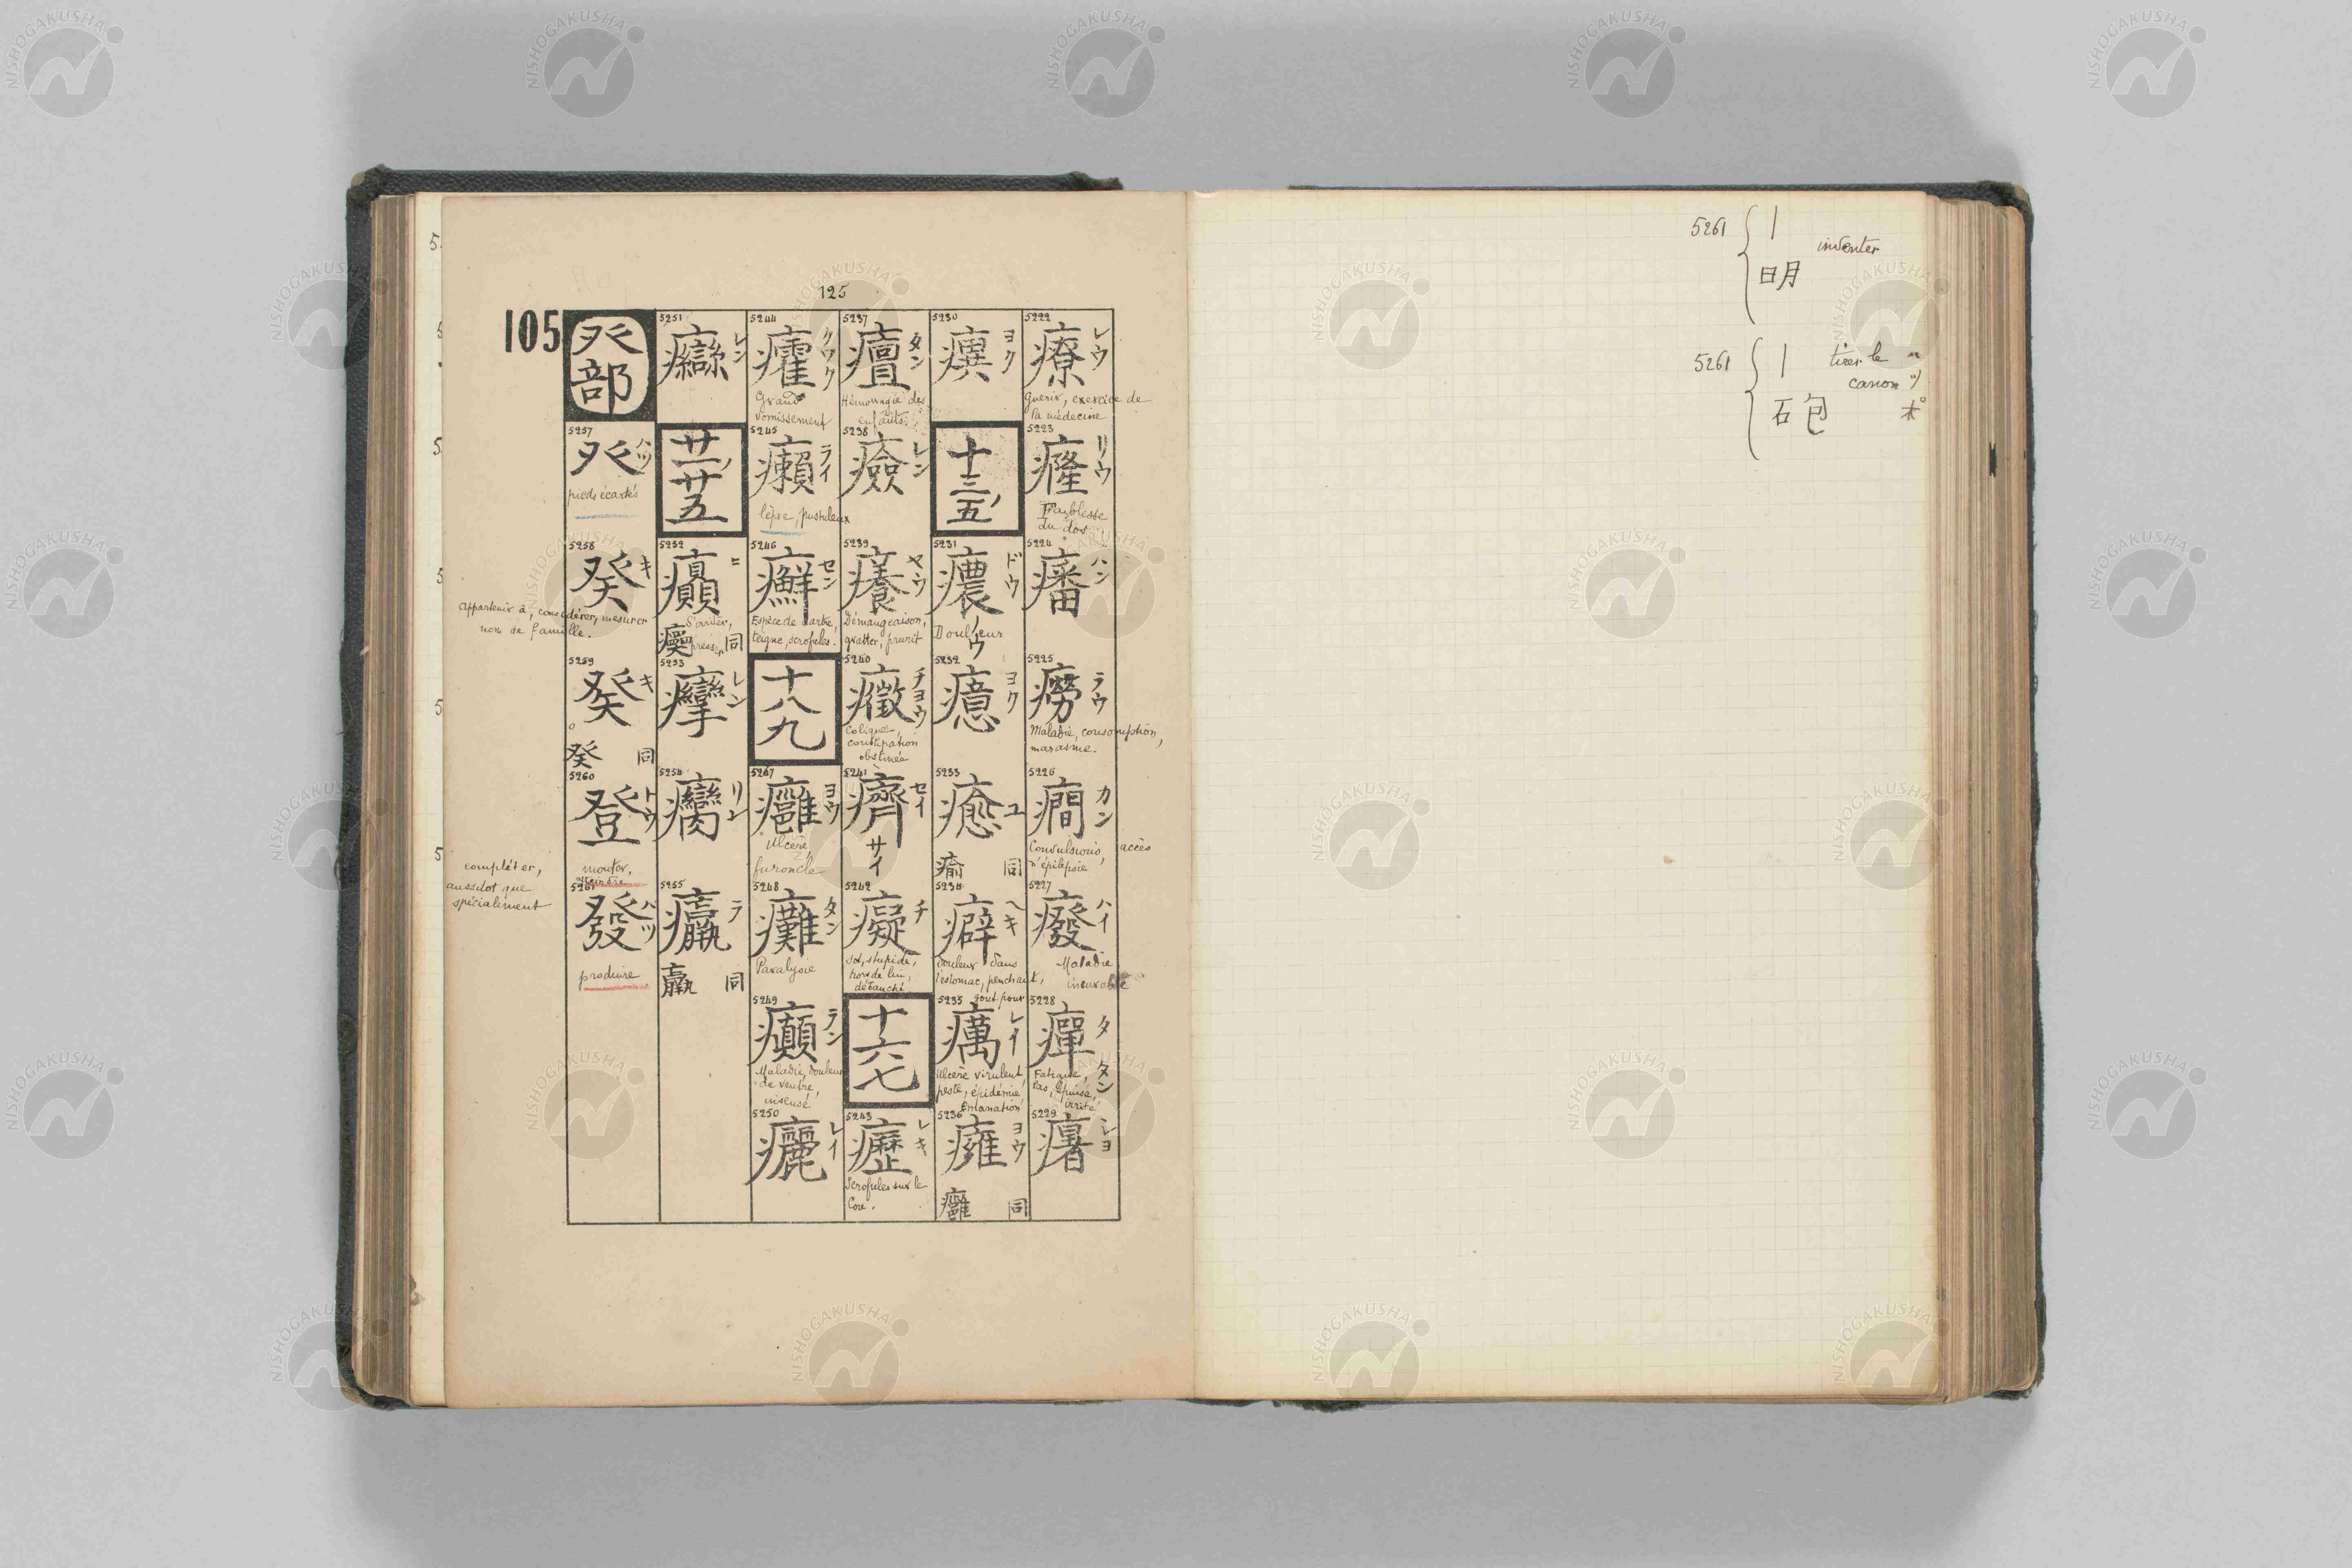 125
105
5222
療
レウ
Guérir, exercice de
la médecine
5223
癃
リウ
Faiblesse
du dos
5224
𤄫
ハン
5225
癆
ラウ
Maladie, consomption,
marasme.
5226
癇
カン
Convulsions, accès
d'épilepsie
5227
癈
ハイ
Maladie
incurable
5228
癉
タ
タン
Fatigué,
las, épuisé,
irrité
5229
ショ
5230
ヨク
十三ノ
五
5231
癑
ドウ
ノウ
Douleur
5232
癔
ヨク
5233
癒
ユ
瘉 同
5234
癖
ヘキ
Douleur dans
l'estomac, penchant,
gout pour
5235
癘
レイ
Ulcère virulent
peste, épidémie
Emanation
5236
癕
ヨウ
癰 同
5237
タン
Hémorragie des
enfants
5238
レン
5239
癢
ヤウ
Démangeaison,
gratter, prurit
5240
癥
チヨウ
Colique,
constipation
obstinée
5241
癠
セイ
サイ
5242
癡
チ
Sot, stupide,
hors de lui,
débauché
十六七
5243
癧
レキ
Scrofules sur le
Cou.
5244
癨
クワク
Grand
vomissement
5245
癩
ライ
lèpre, pustuleux
5246
癬
セン
Espèce de dartre,
teigne, scrofules.
十八九
5247
癰
ヨウ
Ulcère
furoncle
5248
癱
タン
Paralysie
5249
癲
テン
Maladie, douleur
de ventre,
insensé
5250
レイ
5251
レン
廿一ノ
廿五
5252
S'irriter,
presser
同
5253
レン
5254
リン
5255
ラ
同
癶部
5257
癶
ハツ
pieds écartés
5258
癸
キ
Appartenir à, considérer, mesurer
nom de famille.
5259
キ
癸 同
5260
登
トウ
monter,
compléter,
aussitot que
spécialement
5261
發
ハツ
produire
5261
｜
明
inventer
5261
｜
砲
tirer le
canon
ハツ
ポ